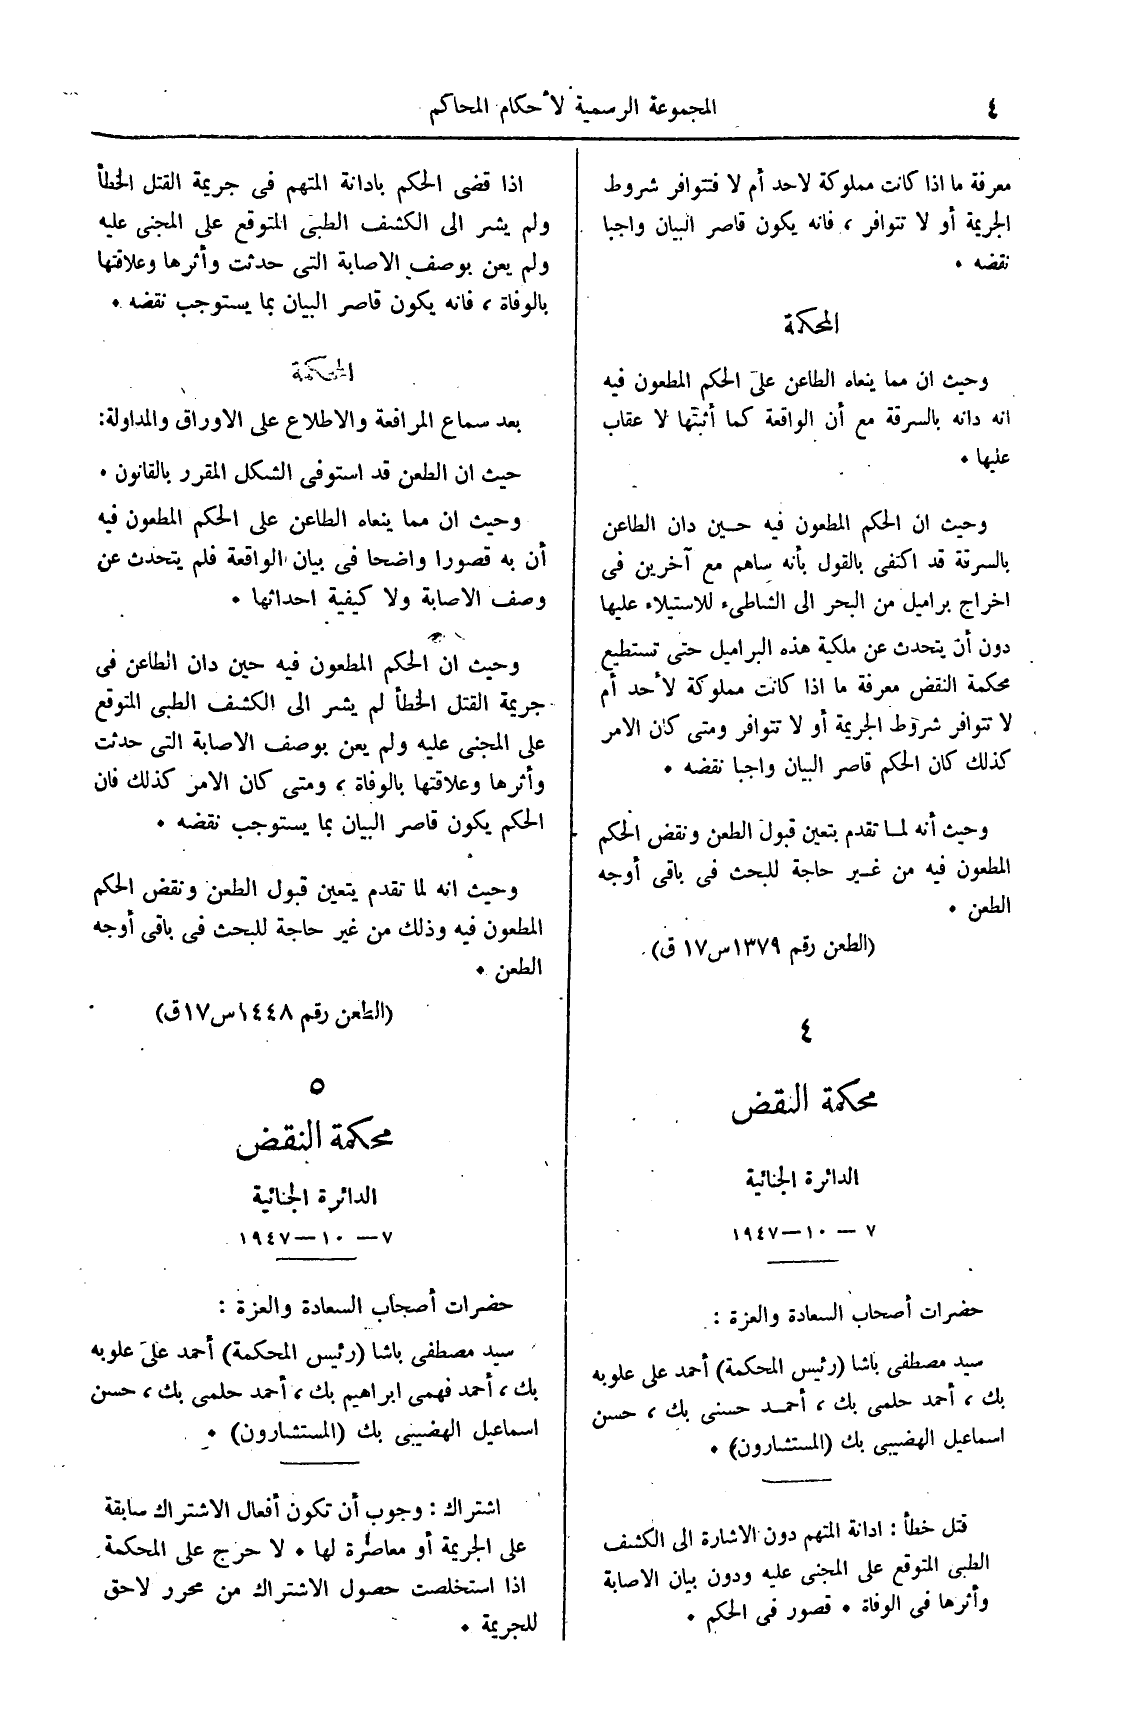 ٤
المجموعة الرسمية لأحكام المحاكم
معرفة ما اذا كانت مملوكة لاحد أم لا فتتوافر شروط
الجريمة أو لا تتوافر ، فانه يكون قاصر البيان واجبا
نقضه ٠
المحكمة
وحيث ان مما ينعاه الطاعن على الحكم المطعون فيه
انه دانه بالسرقة مع أن الواقعة كما أثبتها لا عقاب
عليها ٠
وحيث ان الحكم المطعون فيه حــين دان الطاعن
بالسرقة قد اكتفى بالقول بأنه ساهم مع آخرين فى
اخراج براميل من البحر الى الشاطىء للاستيلاء عليها
دون أن يتحدث عن ملكية هذه البراميل حتى تستطيع
محكمة النقض معرفة ما اذا كانت مملوكة لأحد أم
لا تتوافر شروط الجريمة أو لا تتوافر ومتى كان الامر
كذلك كان الحكم قاصر البيان واجبا نقضه ٠
وحيث أنه لمـا تقدم يتعين قبول الطعن ونقض الحكم
المطعون فيه من غـير حاجة للبحث فى باقى أوجه
الطعن ٠
(الطعن رقم ١٣٧٩ س ١٧ ق)
٤
محكمة النقض
الدائرة الجنائية
٧ — ١٠ — ١٩٤٧
حضرات أصحاب السعادة والعزة :
سيد مصطفى باشا (رئيس المحكمة) أحمد على علوبه
بك ، أحمد حلمى بك ، أحمـد حسنى بك ، حسن
اسماعيل الهضيبى بك (المستشارون) ٠
قتل خطأ : ادانة المتهم دون الاشارة الى الكشف
الطبى المتوقع على المجنى عليه ودون بيان الاصابة
وأثرها فى الوفاة ٠ قصور فى الحكم ٠
اذا قضى الحكم بادانة المتهم فى جريمة القتل الخطأ
ولم يشر الى الكشف الطبى المتوقع على المجنى عليه
ولم يعن بوصف الاصابة التى حدثت وأثرها وعلاقتها
بالوفاة ، فانه يكون قاصر البيان بما يستوجب نقضه ٠
المحكمة
بعد سماع المرافعة والاطلاع على الاوراق والمداولة:
حيث ان الطعن قد استوفى الشكل المقرر بالقانون ٠
وحيث ان مما ينعاه الطاعن على الحكم المطعون فيه
أن به قصورا واضحا فى بيان الواقعة فلم يتحدث عن
وصف الاصابة ولا كيفية احداثها ٠
وحيث ان الحكم المطعون فيه حين دان الطاعن فى
جريمة القتل الخطأ لم يشر الى الكشف الطبى المتوقع
على المجنى عليه ولم يعن بوصف الاصابة التى حدثت
وأثرها وعلاقتها بالوفاة ، ومتى كان الامر كذلك فان
الحكم يكون قاصر البيان بما يستوجب نقضه ٠
وحيث انه لما تقدم يتعين قبول الطعن ونقض الحكم
المطعون فيه وذلك من غير حاجة للبحث فى باقى أوجه
الطعن ٠
(الطعن رقم ١٤٤٨ س ١٧ ق)
٥
محكمة النقض
الدائرة الجنائية
٧ — ١٠ — ١٩٤٧
حضرات أصحاب السعادة والعزة :
سيد مصطفى باشا (رئيس المحكمة) أحمد على علوبه
بك ، أحمد فهمى ابراهيم بك ، أحمد حلمى بك ، حسن
اسماعيل الهضيبى بك (المستشارون) ٠
اشتراك : وجوب أن تكون أفعال الاشتراك سابقة
على الجريمة أو معاصرة لها ٠ لا حرج على المحكمة
اذا استخلصت حصول الاشتراك من محرر لاحق
للجريمة ٠